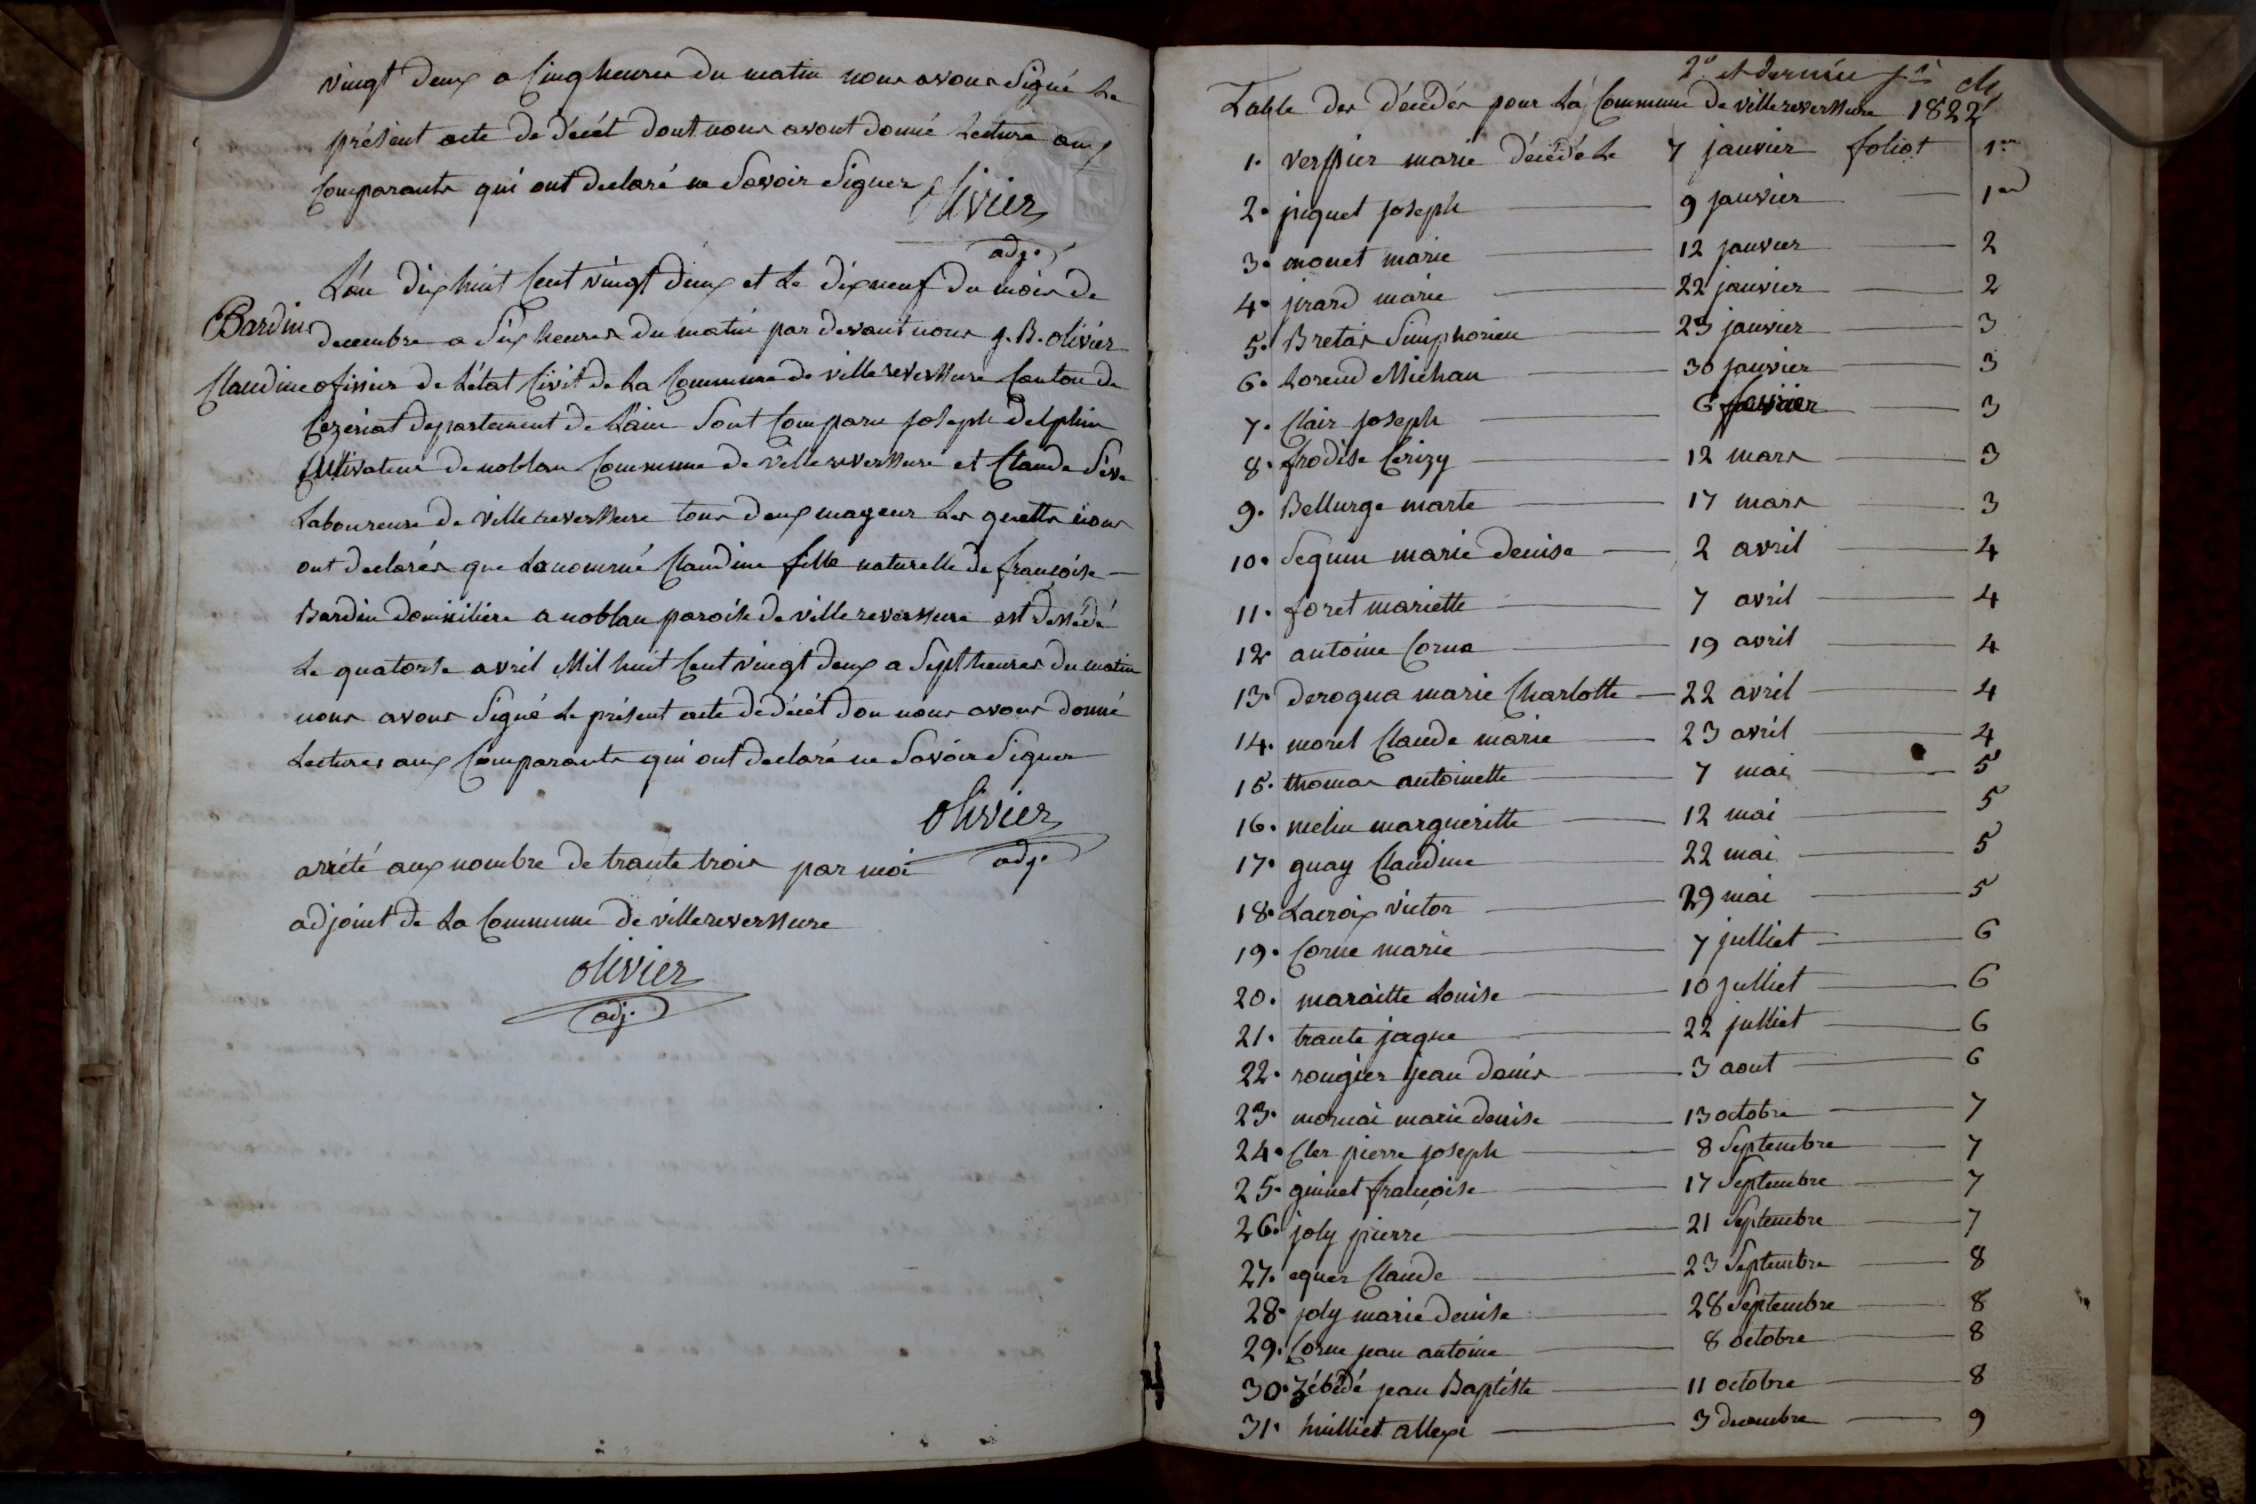 vingt deux a Cinq heures du matin nous avons Signé Le
présent acte de décét dont nous avont donné Lecture aux
Comparants qui ont declaré ne Savoir Signer
olivier
adj.
L'an dix huit Cent vingt deux et Le dix neuf du mois de
Bardin
decembre a Six heures du matin par devant nous j. B. olivier
Claudine
ofisier de L'état Civil de La Commune de villereversure Canton de
Cezériat departement de L'ain Sont Comparu joseph delphin
Cultivateur de noblan Commune de villereversure et Claude Seve
Laboureure de villereversure tous deux mayeur Les quells nous
ont declarés que La nommé Claudine fille naturelle de françoise
Bardin domisiliére a noblan paroise de villereversure est dessédé
Le quatorse avril Mil huit Cent vingt deux a Sept heures du matin
nous avons Signé Le présent acte de décét don nous avons donné
Lectures aux Comparants qui ont declaré ne Savoir Signer
olivier
adj.
arrété aux nombre de trante trois par moi
adjoint de La Commune de villereversure
olivier
adj.
2e et dernier
Table des décédés pour La Commune de villereversure 1822
1. verssier marie décédé Le 7 janvier foliot 1er
2. piquet joseph 9 janvier 1er
3. monet marie 12 janvier 2
4. jirard marie 22 janvier 2
5. Bretas Simphorien 23 janvier 3
6. Lorend Michau 30 janvier 3
7. Clair joseph 6 3
8. frodise Cerizy 12 mars 3
9. Bellurge marte 17 mars 3
10. Seguin marie denise 2 avril 4
11. foret mariette 7 avril 4
12. antoine Corna 19 avril 4
13. derogua marie Charlotte 22 avril 4
14. morel Claude marie 23 avril 4
15. thomas antoinette 7 mai 5
16. melin margueritte 12 mai 5
17. guay Claudine 22 mai 5
18. Lacroix victor 29 mai 5
19. Corne marie 7 julliet 6
20. maraitte Louise 10 julliet 6
21. trante jaque 22 julliet 6
22. rougier jean denis 3 aout 6
23. mornai marie denise 13 octobre 7
24. Cler pierre joseph 8 Septembre 7
25. guinet françoise 17 Septembre 7
26. joly pierre 21 Septembre 7
27. eguer Claude 23 Septembre 8
28. joly marie denise 28 Septembre 8
29. Corne jean antoine 8 octobre 8
30. Zébédé jean Baptiste 11 octobre 8
31. huilliet allexi 3 decembre 9